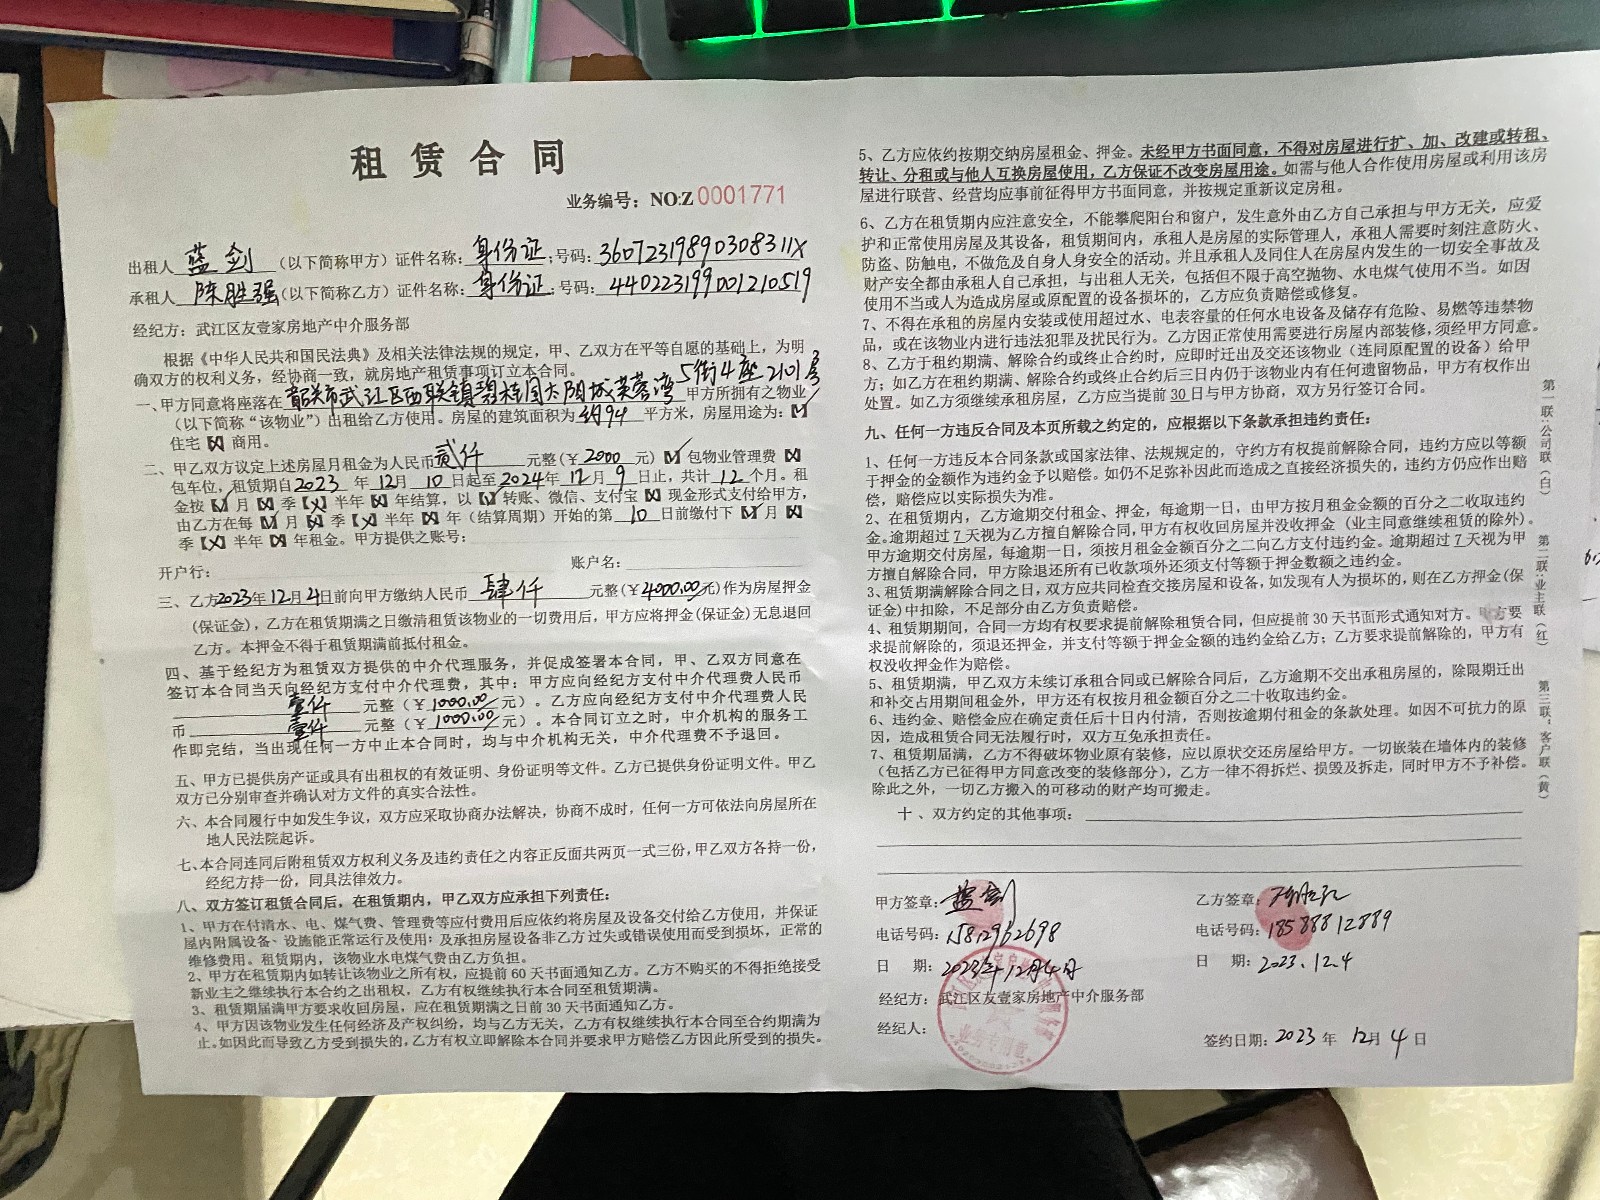 租赁合同
业务编号：NO:Z 0001771
出租人 蓝剑 （以下简称甲方）证件名称：身份证；号码：36072319890308311X
承租人 陈胜强（以下简称乙方）证件名称：身份证；号码：440223199001210519
经纪方：武江区友壹家房地产中介服务部
根据《中华人民共和国民法典》及相关法律法规的规定，甲、乙双方在平等自愿的基础上，为明
确双方的权利义务，经协商一致，就房地产租赁事项订立本合同。
一、甲方同意将座落在韶关市武江区西联镇碧桂园太阳城芙蓉湾5街4座2101号甲方所拥有之物业
（以下简称“该物业”）出租给乙方使用。房屋的建筑面积为约94平方米，房屋用途为：【√】
住宅【X】商用。
二、甲乙双方议定上述房屋月租金为人民币贰仟元整(￥2000元)【√】包物业管理费【X】
包车位，租赁期自2023年12月10日起至2024年12月9日止，共计12个月。租
金按【√】月【X】季【X】半年【X】年结算，以【√】转账、微信、支付宝【X】现金形式支付给甲方，
由乙方在每【√】月【X】季【X】半年【X】年（结算周期）开始的第10日前缴付下【√】月【X】
季【X】半年【X】年租金。甲方提供之账号：
开户行： 账户名：
三、乙方2023年12月4日前向甲方缴纳人民币肆仟元整(￥4000.00元)作为房屋押金
(保证金)，乙方在租赁期满之日缴清租赁该物业的一切费用后，甲方应将押金(保证金)无息退回
乙方。本押金不得于租赁期满前抵付租金。
四、基于经纪方为租赁双方提供的中介代理服务，并促成签署本合同，甲、乙双方同意在
签订本合同当天向经纪方支付中介代理费，其中：甲方应向经纪方支付中介代理费人民币
壹仟元整(￥1000.00元)。乙方应向经纪方支付中介代理费人民
币壹仟元整(￥1000.00元)。本合同订立之时，中介机构的服务工
作即完结，当出现任何一方中止本合同时，均与中介机构无关，中介代理费不予退回。
五、甲方已提供房产证或具有出租权的有效证明、身份证明等文件。乙方已提供身份证明文件。甲乙
双方已分别审查并确认对方文件的真实合法性。
六、本合同履行中如发生争议，双方应采取协商办法解决，协商不成时，任何一方可依法向房屋所在
地人民法院起诉。
七、本合同连同后附租赁双方权利义务及违约责任之内容正反面共两页一式三份，甲乙双方各持一份，
经纪方持一份，同具法律效力。
八、双方签订租赁合同后，在租赁期内，甲乙双方应承担下列责任：
1、甲方在付清水、电、煤气费、管理费等应付费用后应依约将房屋及设备交付给乙方使用，并保证
屋内附属设备、设施能正常运行及使用；及承担房屋设备非乙方过失或错误使用而受到损坏，正常的
维修费用。租赁期内，该物业水电煤气费由乙方负担。
2、甲方在租赁期内如转让该物业之所有权，应提前60天书面通知乙方。乙方不购买的不得拒绝接受
新业主之继续执行本合约之出租权，乙方有权继续执行本合同至租赁期满。
3、租赁期届满甲方要求收回房屋，应在租赁期满之日前30天书面通知乙方。
4、甲方因该物业发生任何经济及产权纠纷，均与乙方无关，乙方有权继续执行本合同至合约期满为
止。如因此而导致乙方受到损失的，乙方有权立即解除本合同并要求甲方赔偿乙方因此所受到的损失。
5、乙方应依约按期交纳房屋租金、押金。未经甲方书面同意，不得对房屋进行扩、加、改建或转租、
转让、分租或与他人互换房屋使用，乙方保证不改变房屋用途。如需与他人合作使用房屋或利用该房
屋进行联营、经营均应事前征得甲方书面同意，并按规定重新议定房租。
6、乙方在租赁期内应注意安全，不能攀爬阳台和窗户，发生意外由乙方自己承担与甲方无关，应爱
护和正常使用房屋及其设备，租赁期间内，承租人是房屋的实际管理人，承租人需要时刻注意防火、
防盗、防触电，不做危及自身人身安全的活动。并且承租人及同住人在房屋内发生的一切安全事故及
财产安全都由承租人自己承担，与出租人无关，包括但不限于高空抛物、水电煤气使用不当。如因
使用不当或人为造成房屋或原配置的设备损坏的，乙方应负责赔偿或修复。
7、不得在承租的房屋内安装或使用超过水、电表容量的任何水电设备及储存有危险、易燃等违禁物
品，或在该物业内进行违法犯罪及扰民行为。乙方因正常使用需要进行房屋内部装修，须经甲方同意。
8、乙方于租约期满、解除合约或终止合约时，应即时迁出及交还该物业（连同原配置的设备）给甲
方；如乙方在租约期满、解除合约或终止合约后三日内仍于该物业内有任何遗留物品，甲方有权作出
处置。如乙方须继续承租房屋，乙方应当提前30日与甲方协商，双方另行签订合同。
九、任何一方违反合同及本页所载之约定的，应根据以下条款承担违约责任：
1、任何一方违反本合同条款或国家法律、法规规定的，守约方有权提前解除合同，违约方应以等额
于押金的金额作为违约金予以赔偿。如仍不足弥补因此而造成之直接经济损失的，违约方仍应作出赔
偿，赔偿应以实际损失为准。
2、在租赁期内，乙方逾期交付租金、押金，每逾期一日，由甲方按月租金金额的百分之二收取违约
金。逾期超过7天视为乙方擅自解除合同，甲方有权收回房屋并没收押金（业主同意继续租赁的除外）。
甲方逾期交付房屋，每逾期一日，须按月租金金额百分之二向乙方支付违约金。逾期超过7天视为甲
方擅自解除合同，甲方除退还所有已收款项外还须支付等额于押金数额之违约金。
3、租赁期满解除合同之日，双方应共同检查交接房屋和设备，如发现有人为损坏的，则在乙方押金(保
证金)中扣除，不足部分由乙方负责赔偿。
4、租赁期期间，合同一方均有权要求提前解除租赁合同，但应提前30天书面形式通知对方。甲方要
求提前解除的，须退还押金，并支付等额于押金金额的违约金给乙方；乙方要求提前解除的，甲方有
权没收押金作为赔偿。
5、租赁期满，甲乙双方未续订承租合同或已解除合同后，乙方逾期不交出承租房屋的，除限期迁出
和补交占用期间租金外，甲方还有权按月租金额百分之二十收取违约金。
6、违约金、赔偿金应在确定责任后十日内付清，否则按逾期付租金的条款处理。如因不可抗力的原
因，造成租赁合同无法履行时，双方互免承担责任。
7、租赁期届满，乙方不得破坏物业原有装修，应以原状交还房屋给甲方。一切嵌装在墙体内的装修
（包括乙方已征得甲方同意改变的装修部分），乙方一律不得拆烂、损毁及拆走，同时甲方不予补偿。
除此之外，一切乙方搬入的可移动的财产均可搬走。
十、双方约定的其他事项：
甲方签章：蓝剑 乙方签章：
电话号码：15812962698 电话号码：18588812889
日 期：2023年12月4日 日 期：2023.12.4
经纪方：武江区友壹家房地产中介服务部
经纪人：
业务专用章
签约日期：2023年 12月 4日
第一联：公司联（白） 第二联：业主联（红） 第三联：客户联（黄）